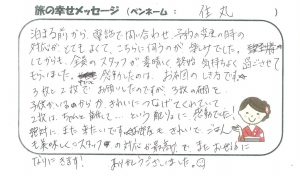 旅の幸せメッセージ(ペンネーム: 住丸 )
泊まる前から、電話で問い合わせ、予約の変更の時の
対応がとてもよくて、こちらに伺うのが楽しみでした。
しても、全員のスタッフが素晴しく 気持ちよく過ごさせて
もらいました。 感動したのは、お布団のしき方です
3枚と2枚で お願いしたのですが、3枚の布団を
きれいにつなげてくれていて
2枚は、ちゃんと離して… という感じで 感動でした!
絶対に また来たいです。 きれいで ごはん
も美味しく スタッフの対応が最高で、またお世話に
なりにきます! ありがとうございました。